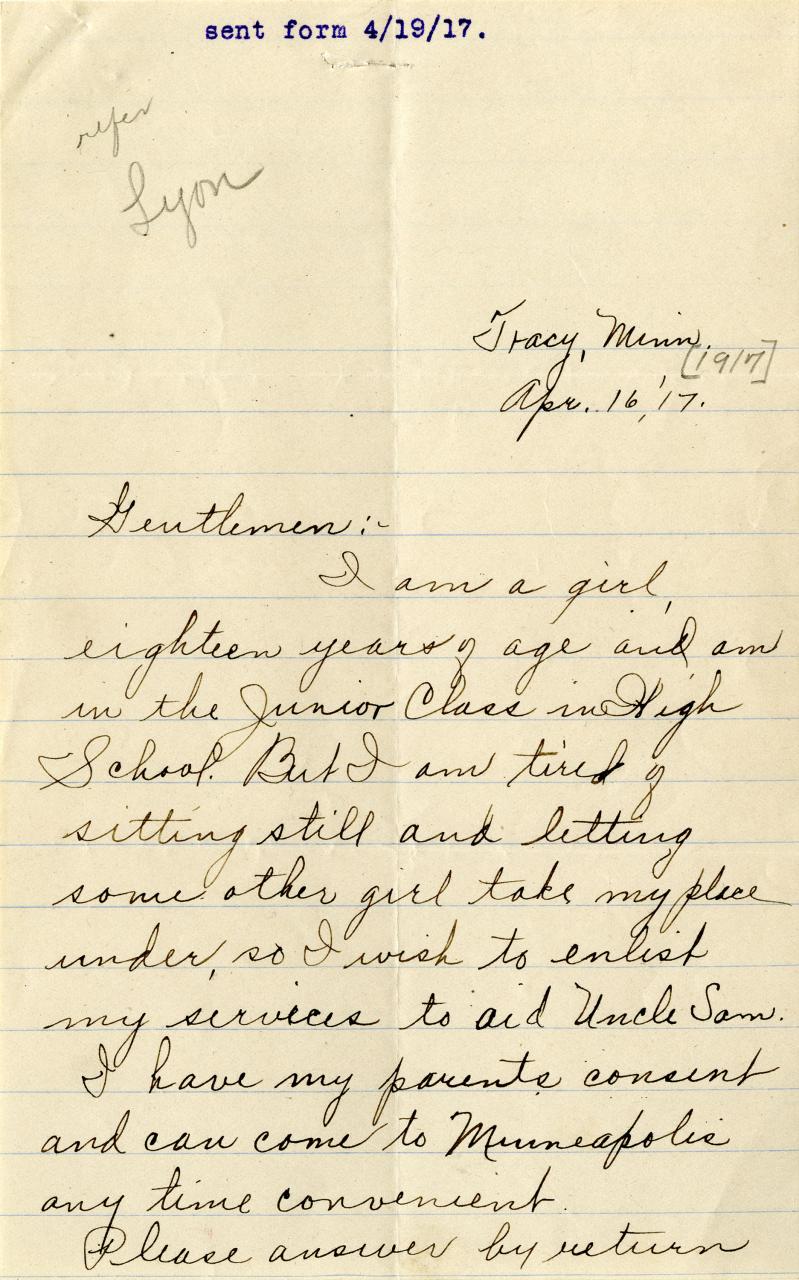 sent form 4/19/17.
refer
Lyon
Tracy, Minn.
[1917]
Apr. 16, '17.
Gentlemen:-
I am a girl,
eighteen years of age and am
in the Junior Class in High
School. But I am tired of
sitting still and letting
some other girl take my place
under, so I wish to enlist
my services to aid Uncle Sam.
I have my parents consent
and can come to Minneapolis
any time convenient.
Please answer by return